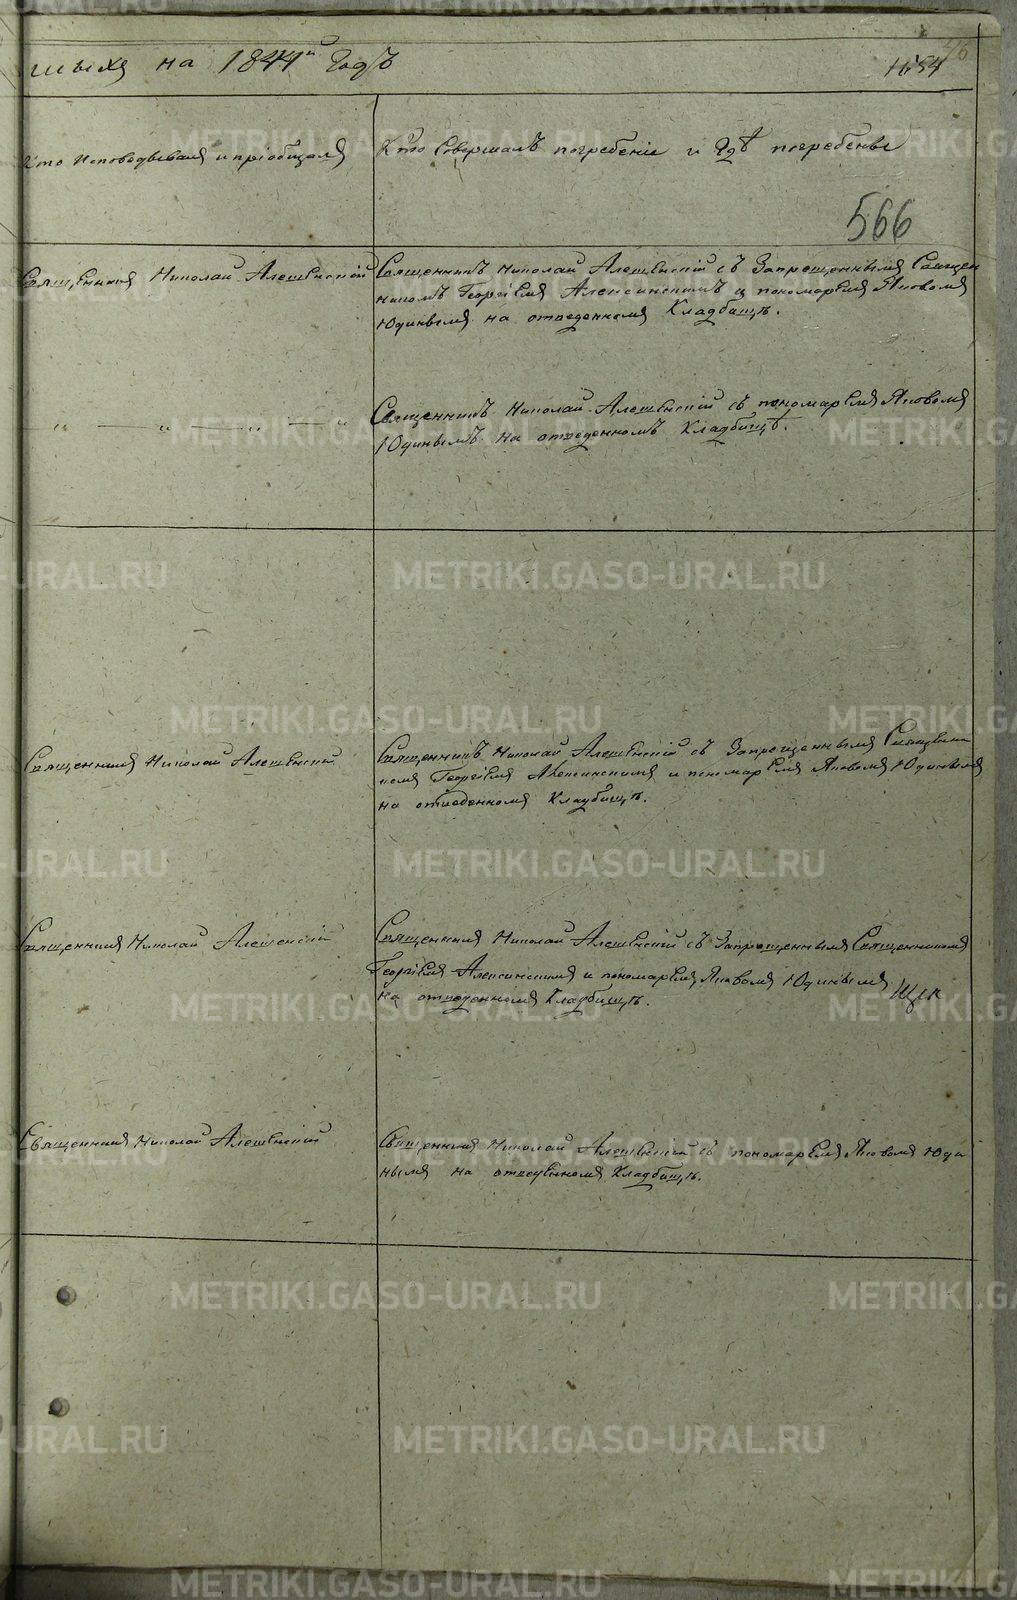 шыхъ на 1844й Годъ
46
566
Кто исповѣдывалъ и пріобщалъ
Кто Совершалъ погребеніе и Гдѣ погребены
Священникъ Николай Алешенской
Священникъ Николай Алешенскій съ Запрещеннымъ Священ
никомъ Георгіемъ Алексинскимъ и пономаремъ Яковомъ
Юдинымъ на отведенномъ Кладбищѣ.
" — " — " — "
Священникъ Николай Алешенскій съ пономаремъ Яковомъ
Юдинымъ на отведенномъ Кладбищѣ.
Священникъ Николай Алешенскій
Священникъ Николай Алешенскій съ Запрещеннымъ Священни
комъ Георгіемъ Алексинскимъ и пономаремъ Яковомъ Юдинымъ
на отведенномъ Кладбищѣ.
Священникъ Николай Алешенскій
Священникъ Николай Алешенскій съ Запрещеннымъ Священникомъ
Георгіемъ Алексинскимъ и пономаремъ Яковомъ Юдинымъ
на отведенномъ Кладбищѣ.
Священникъ Николай Алешенскій
Священникъ Николай Алешенскій съ пономаремъ Яковомъ Юди
нымъ на отведенномъ Кладбищѣ.
METRIKI.GASO-URAL.RU